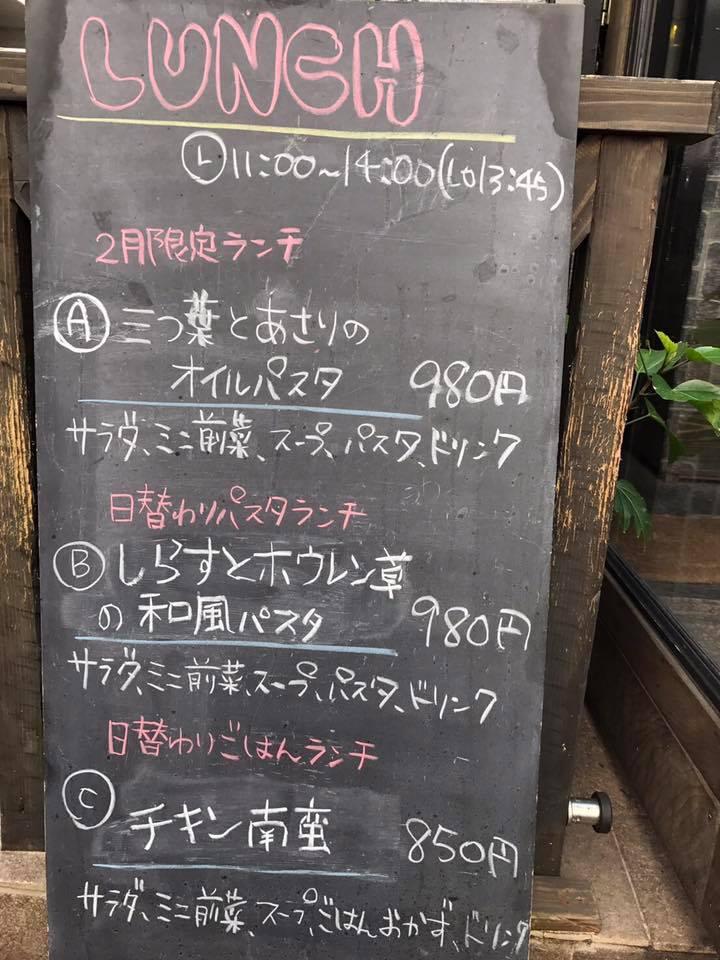 LUNCH
Ⓛ 11:00~14:00(LO13:45)
2月限定ランチ
Ⓐ 三つ葉とあさりの
オイルパスタ 980円
サラダ、ミニ前菜、スープ、パスタ、ドリンク
日替わりパスタランチ
Ⓑ しらすとホウレン草
の和風パスタ 980円
サラダ、ミニ前菜、スープ、パスタ、ドリンク
日替わりごはんランチ
Ⓒ チキン南蛮 850円
サラダ、ミニ前菜、スープ、ごはんおかず、ドリンク